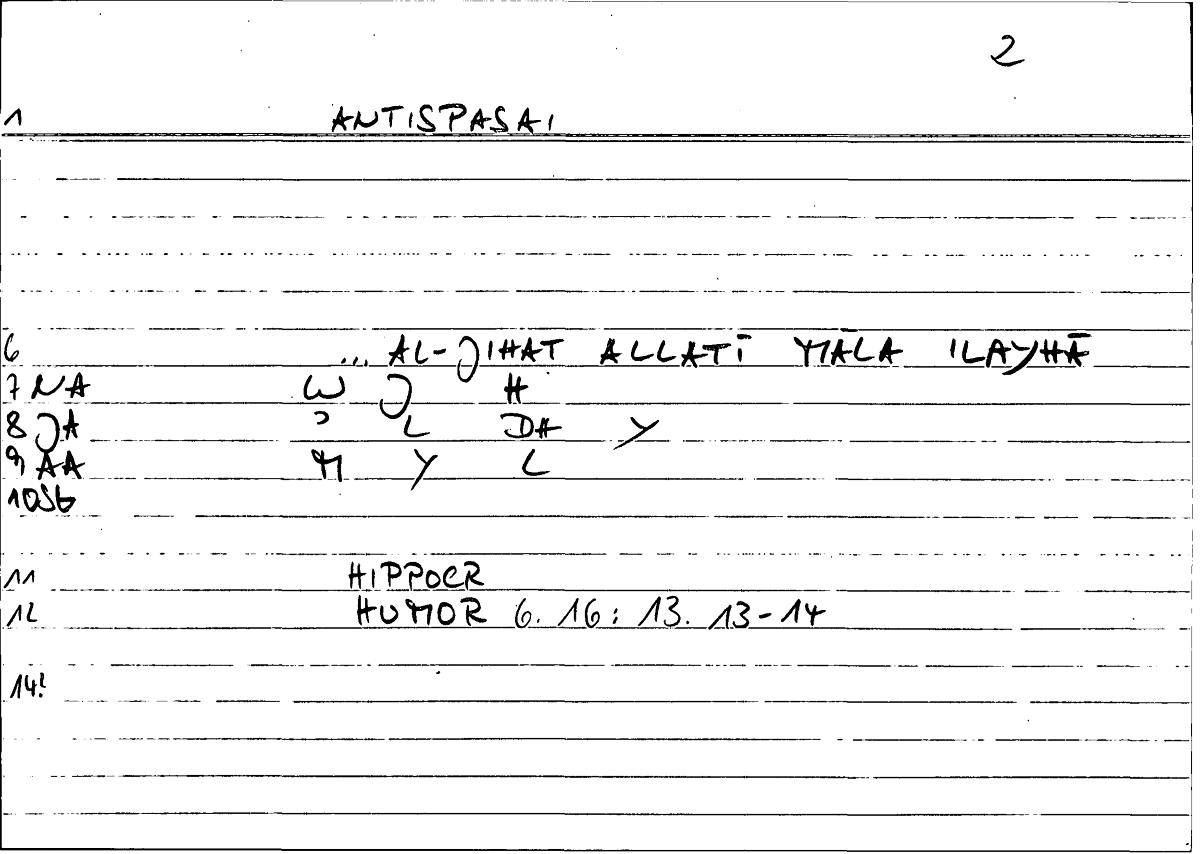 2
1 ANTISPASAI
6 ... AL-JIHAT ALLATĪ MĀLA ILAYHĀ
7 NA W J H
8 JA ʾ L DH Y
9 AA M Y L
10
11 HIPPOCR
12 HUMOR 6. 16: 13. 13-14
14